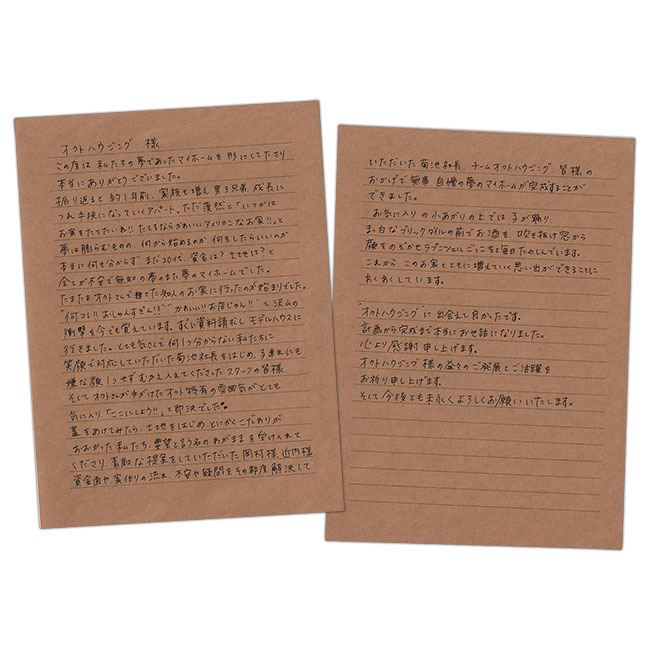 オクトハウジング 様
この度は 私たちの夢であったマイホームを 形にして下さり
本当にありがとうございました。
振り返ると 約1年前、家族も増え 男3兄弟 成長に
つれ手狭になっていくアパート。ただ漠然と「いつかは
お家をたてたいね!! たてるならかわいいアメリカンなお家!!」と
夢は膨らむものの、何から始めるのか、何をしたらいいのか
本当に何も分からず まだ20代、資金は? 土地は? と
全てが不安で無知の夢のまた夢のマイホームでした。
たまたま オクトさんで建てた知人のお家に行ったのが始まりでした。
"何コレ!! おしゃんすぎん!?" "かわいい!! お店じゃん!!" と 沢山の
衝撃を今でも覚えています。すぐに資料請求し モデルハウスに
行きました。とても気さくで 何1つ分からない私たちに
笑顔で対応していただいた菊池社長をはじめ、子連れにも
嫌な顔 1つせず むかえ入れてくださった スタッフの皆様
そして オクトさんが手がけたオクト特有の雰囲気がとても
気に入り、「ここにしよう!!」と即決でした。
蓋をあけてみたら、土地をはじめ とにかくこだわりが
おおかった 私たち、要望と言う名のわがままを受け入れて
くださり 素敵な提案をしていただいた 岡村様 近内様
資金面や 家作りの流れ、不安や疑問をその都度 解決して
いただいた 菊池社長、チームオクトハウジング 皆様の
おかげで 無事 自慢の夢のマイホームが完成することが
できました。
お気に入りの 小あがりの上では 子が踊り
まっ白なブリックタイルの前でお酒を、吹き抜け窓から
顔をのぞかせラプンツェルごっこをと毎日たのしんでいます。
これから、このお家とともに増えていく思い出ができることに
わくわくしています。
"オクトハウジング"に出会えて良かったです。
計画から完成まで本当にお世話になりました。
心より感謝申し上げます。
オクトハウジング様の益々のご発展とご活躍を
お祈り申し上げます。
そして今後とも末永くよろしくお願いいたします。